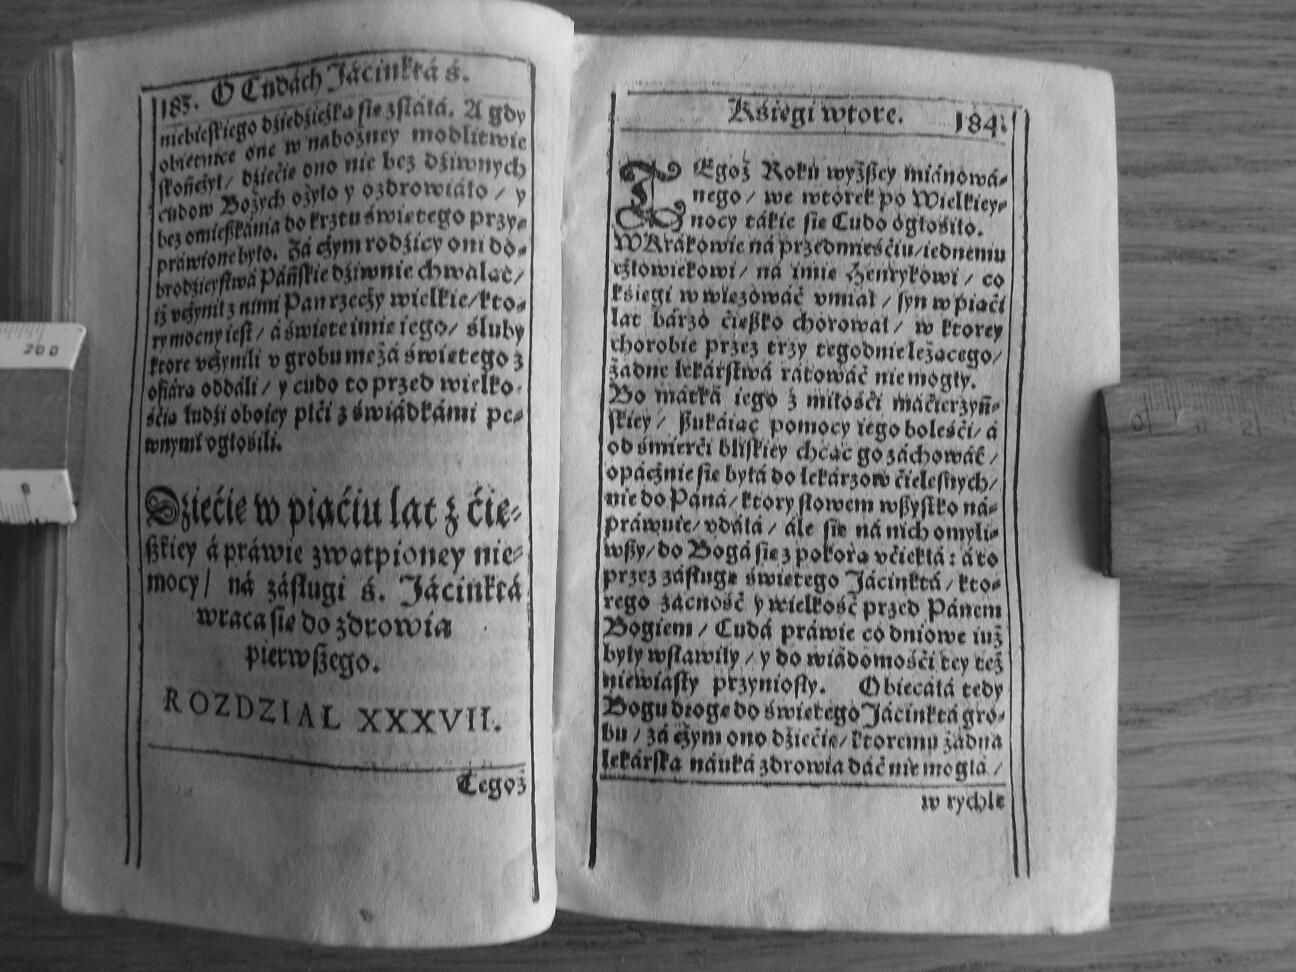 183. O Cudách Jácinktá ś.
niebieskiego dźiedźiczka sie zstáłá. A gdy
obietnice one w nabożney modlitwie
skończył / dźiećie ono nie bez dźiwnych
cudow Bożych ożyło y ozdrowiáło / y
bez omieszkánia do krztu świętego przy-
práwione było. Zá czym rodźicy oni do-
brodzieystwá Páńskie dźiwnie chwaląc /
iż vczynił z nimi Pan rzeczy wielkie / kto-
ry mocny iest / á święte imię iego / śluby
ktore vczynili v grobu mężá świętego z
ofiárą oddáli / y cudo to przed wielko-
śćią ludźi oboiey płći z świádkámi pe-
wnymi ogłośili.
Dźiećię w piąćiu lat z ćię-
szkiey á práwie zwątpioney nie-
mocy / ná zásługi ś. Jácinktá
wraca się do zdrowia
pierwszego.
ROZDZIAL XXXVII.
Tegoż
Kśięgi wtore. 184.
TEgoż Roku wyższey miánowá-
nego / we wtorek po Wielkiey-
nocy tákie się Cudo ogłośiło.
W Krákowie ná przedmieśćiu / iednemu
człowiekowi / ná imię Henrykowi / co
kśięgi wwięzowáć vmiał / syn w piąći
lat bárzo ćięszko chorował / w ktorey
chorobie przez trzy tegodnie leżącego /
żadne lekárstwá rátowáć nie mogły.
Bo mátká iego z miłośći máćierzyń-
skiey / szukáiąc pomocy iego boleśći / á
od śmierći bliskiey chcąc go záchowáć /
opácznie się byłá do lekárzow ćielesnych /
nie do Páná / ktory słowem wszystko ná-
práwuie / vdáłá / ále się ná nich omyli-
wszy / do Bogá się z pokorą vćiekłá : á to
przez zásługę świętego Jácinktá / kto-
rego zacność y wielkość przed Pánem
Bogiem / Cudá práwie co dniowe iuż
były wsławiły / y do wiádomośći tey też
niewiásty przyniosły. Obiecáłá tedy
Bogu drogę do świętego Jácinktá gro-
bu / zá czym ono dźiećię / ktoremu żadna
lekárska náuká zdrowia dáć nie mogłá /
w rychle
200
0
2